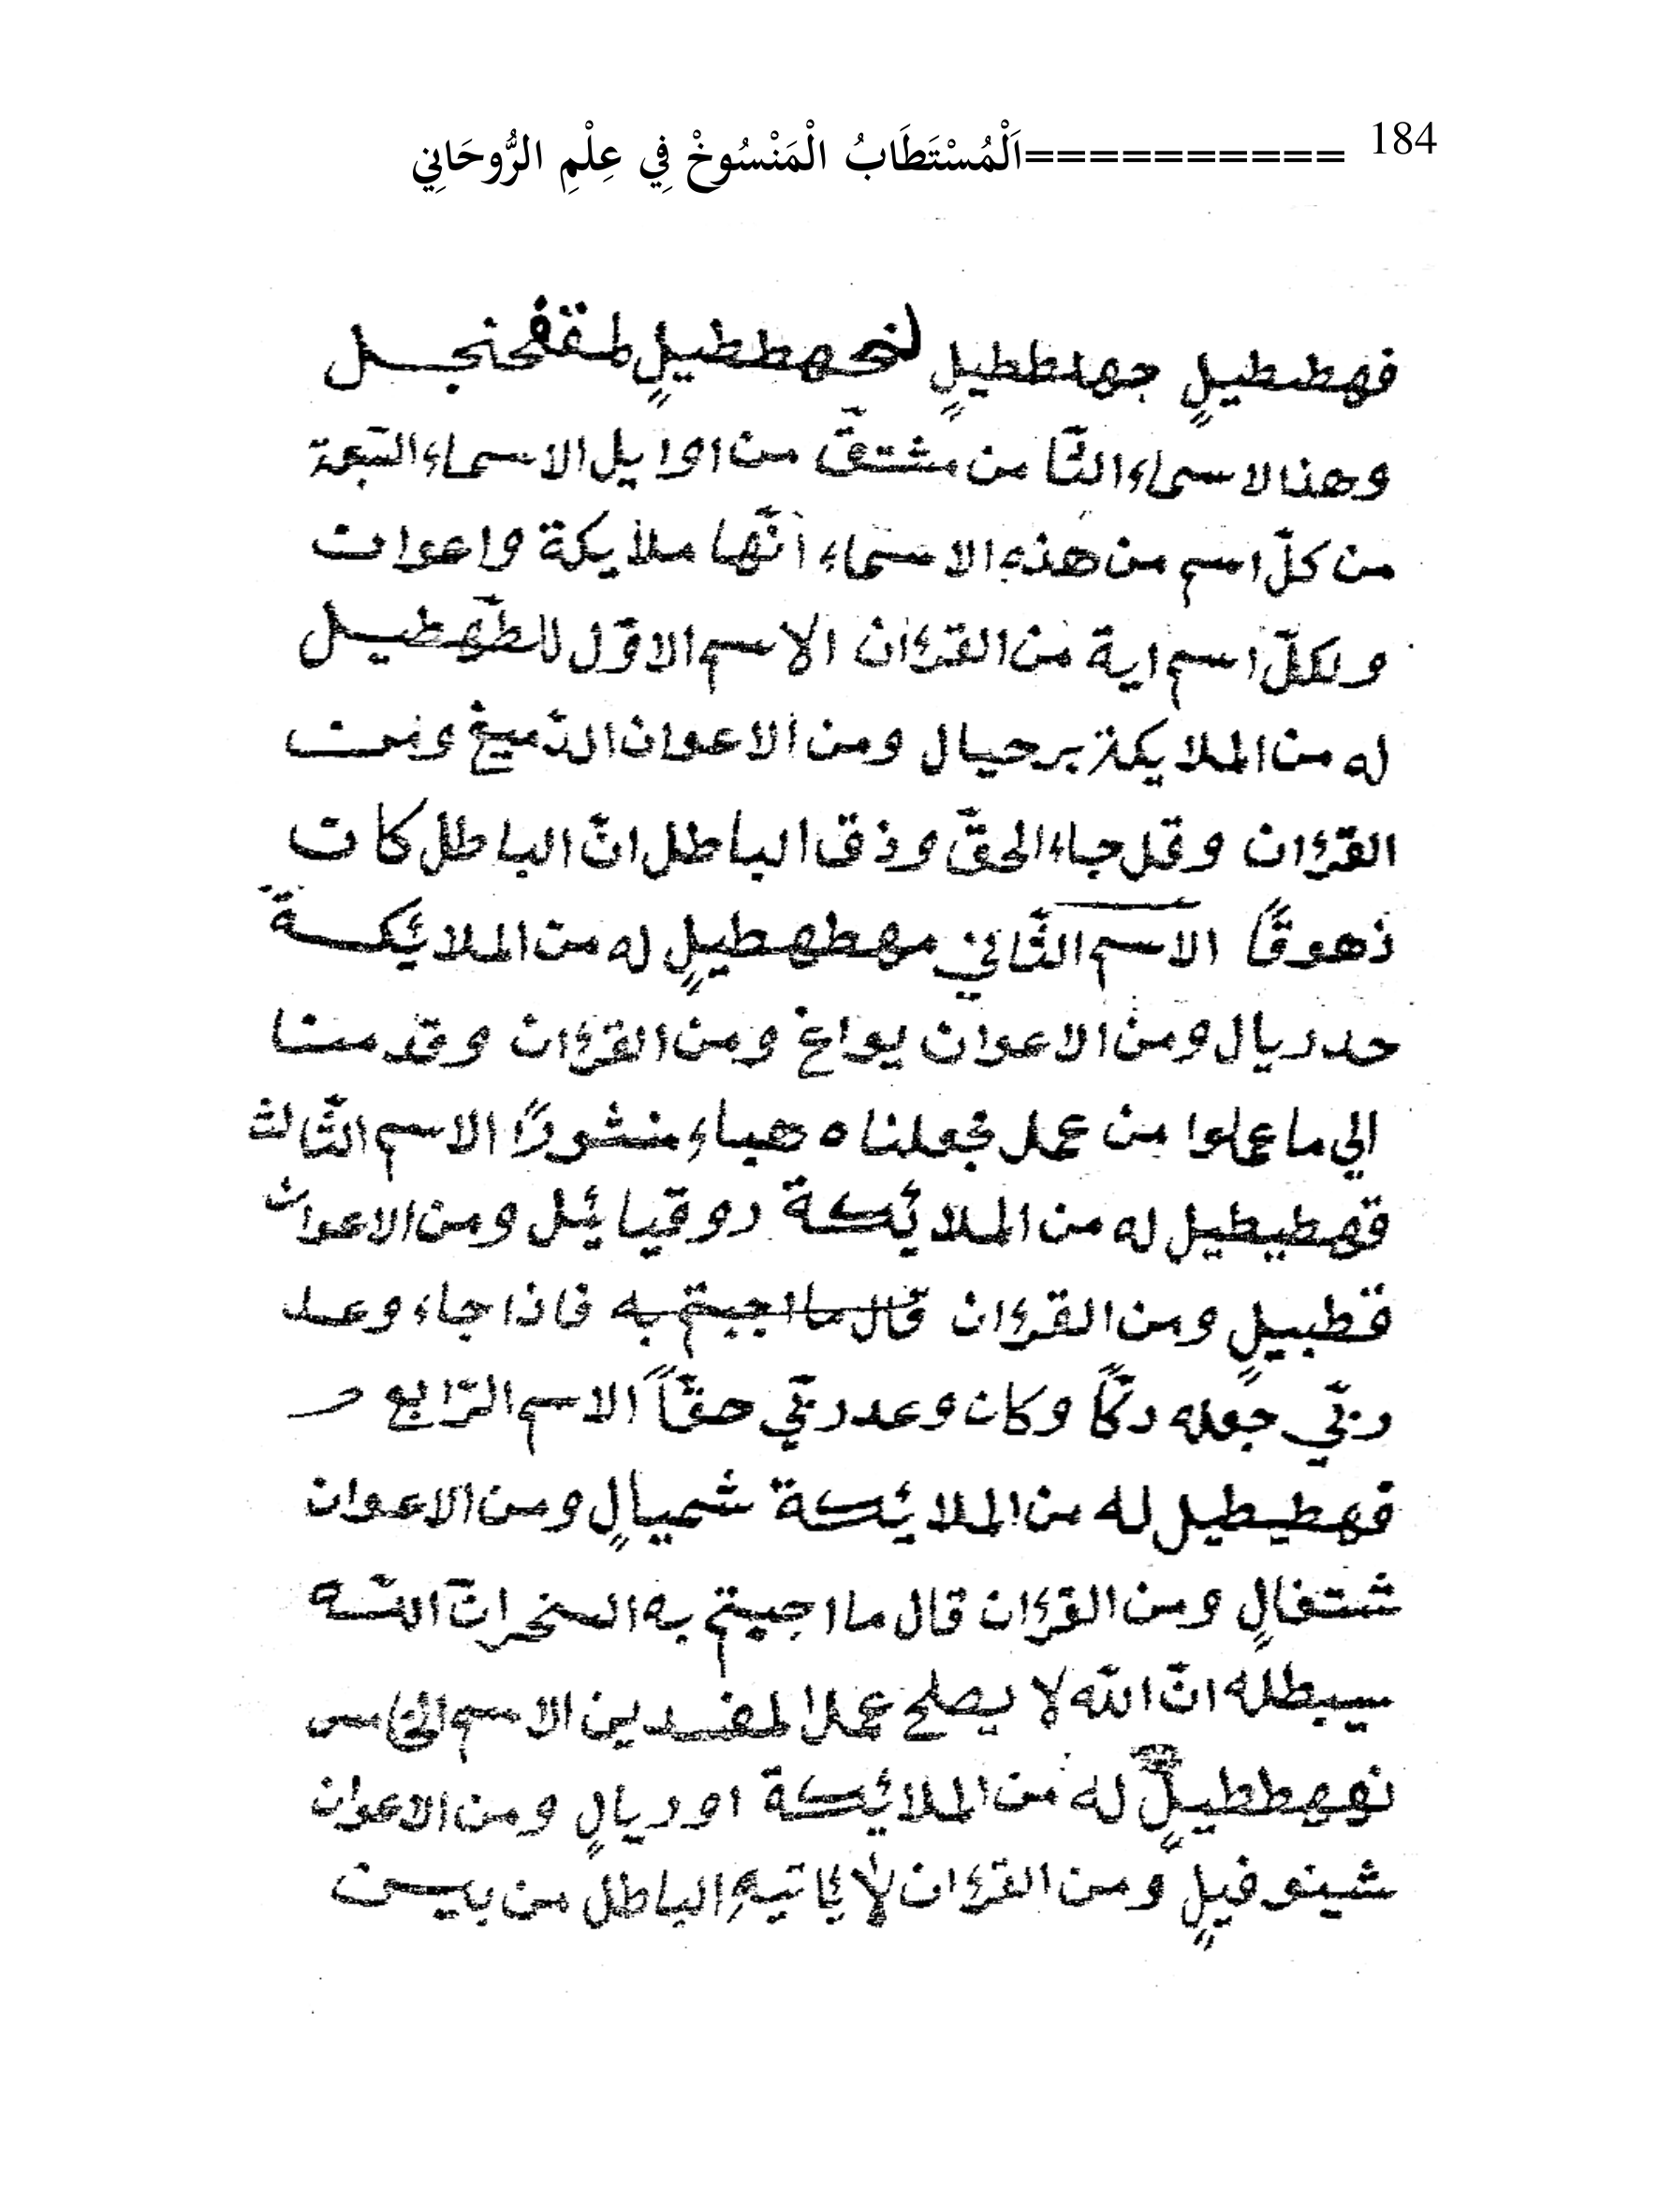 184 ==========اَلْمُسْتَطَابُ الْمَنْسُوخْ فِي عِلْمِ الرُّوحَانِي
فهططيلٍ جهلططيلٍ لنحهططيلٍ لمقفنجل
وهذالاسماء الثّامن مشتقّ من اوايل الاسماء السّبعة
من كلّ اسم من هذه الاسماء انّها ملايكة واعوان
ولكلّ اسم اية من القرءان الاسم الاوّل للطّهطيل
له من الملايكة برحيال ومن الاعوان الدّميغ ومن
القرءان وقل جاء الحقّ وذق الباطل انّ الباطل كان
ذهوقًا الاسم الثّاني مهطهطيلٍ له من الملائكة
حدديال ومن الاعوان يواغ ومن القرءان وقدمنا
الي ما عملوا من عمل فجعلناه هباء منشورًا الاسم الثّالث
قهطيطيل له من الملائكة روقيائيل ومن الاعوان
قطبيلٍ ومن القرءان قال ما اجبتم به فاذا جاء وعد
ربّي جعله دكّاً وكان وعد ربّي حقّاً الاسم الرّابع
فهطيطيل له من الملائكة شميالٍ ومن الاعوان
شتغالٍ ومن القرءان قال ما اجيبتم به السخر انّ اللّه
سيبطله انّ اللّه لا يصلح عمل المفسدين الاسم الخامس
نهططيلٍ له من الملائكة اوديالٍ ومن الاعوان
شينوفيلٍ ومن القرءان لا ياتيهِ الباطل من بين